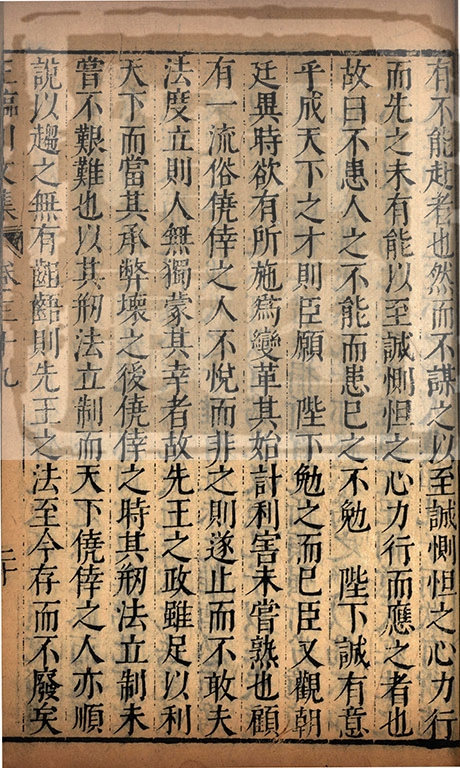 有不能赴者也然而不謀之以至誠惻怛之心力行
而先之未有能以至誠惻怛之心力行而應之者也
故曰不患人之不能而患已之不勉　陛下誠有意
乎成天下之才則臣願　陛下勉之而已臣又觀朝
廷異時欲有所施爲變革其始計利害未嘗熟也顧
有一流俗僥倖之人不悅而非之則遂止而不敢夫
法度立則人無獨蒙其幸者故先王之政雖足以利
天下而當其承弊壞之後僥倖之時其剏法立制未
嘗不艱難也以其剏法立制而天下僥倖之人亦順
說以趨之無有齟齬則先王之法至今存而不廢矣
王臨川文集　卷三十九　二十